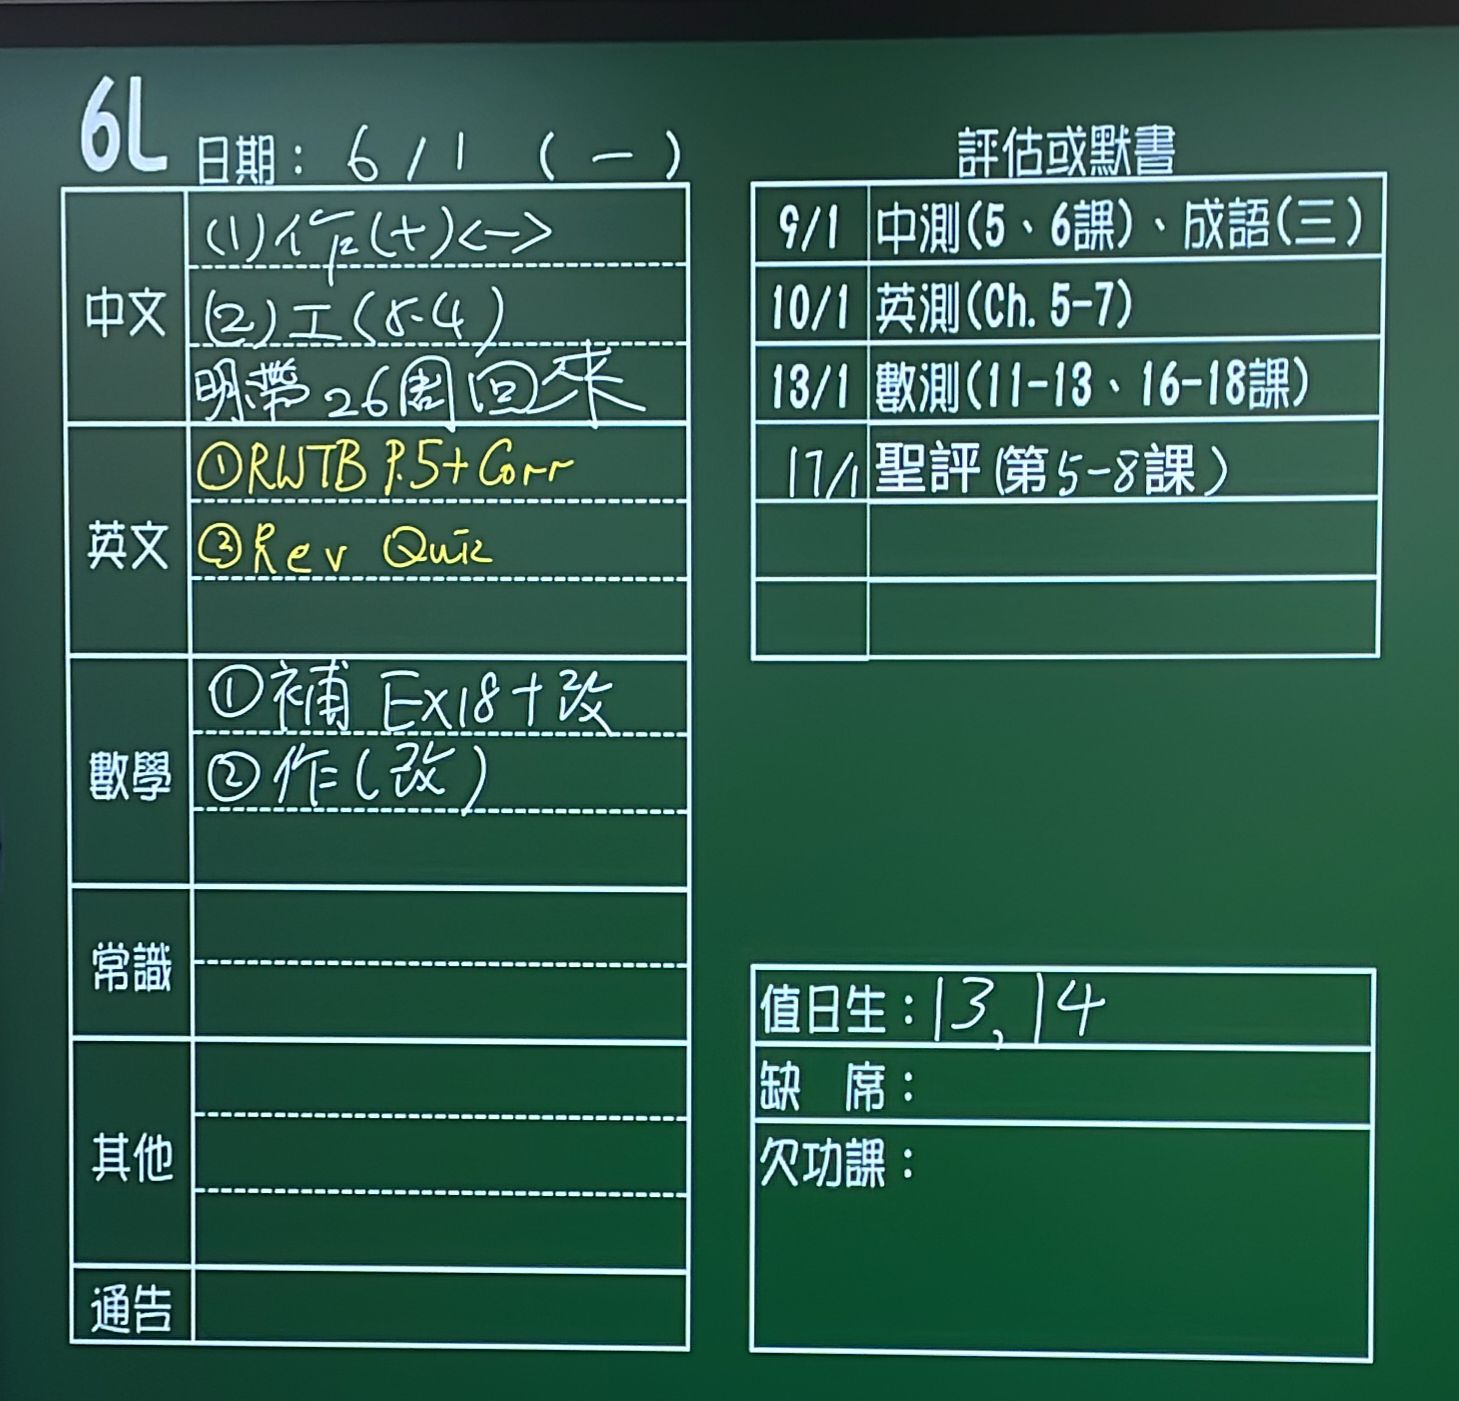 6L 日期： 6/1 (一)
中文
(1)作(十)<一>
(2)工(5-4)
明帶26周回來
英文
①RWTB P.5+Corr
②Rev Quiz
數學
①補 Ex18+改
②作(改)
常識
其他
通告
評估或默書
9/1 中測(5、6課)、成語(三)
10/1 英測(Ch. 5-7)
13/1 數測(11-13、16-18課)
17/1 聖評(第5-8課)
值日生：13, 14
缺 席：
欠功課：